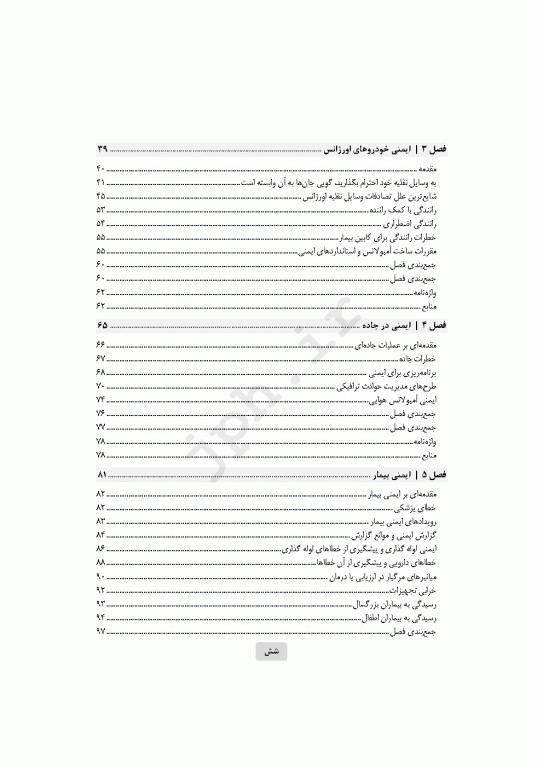 فصل ۳ | ایمنی خودروهای اورژانس ........ ۳۹
مقدمه ........ ۴۰
به وسایل نقلیه خود احترام بگذارید، گویی جان‌ها به آن وابسته است ........ ۴۱
شایع‌ترین علل تصادفات وسایل نقلیه اورژانس ........ ۴۵
رانندگی با کمک راننده ........ ۵۳
رانندگی اضطراری ........ ۵۴
خطرات رانندگی برای کابین بیمار ........ ۵۵
مقررات ساخت آمبولانس و استانداردهای ایمنی ........ ۵۵
جمع‌بندی فصل ........ ۶۰
جمع‌بندی فصل ........ ۶۰
واژه‌نامه ........ ۶۲
منابع ........ ۶۲
فصل ۴ | ایمنی در جاده ........ ۶۵
مقدمه‌ای بر عملیات جاده‌ای ........ ۶۶
خطرات جاده ........ ۶۷
برنامه‌ریزی برای ایمنی ........ ۶۸
طرح‌های مدیریت حوادث ترافیکی ........ ۷۰
ایمنی آمبولانس هوایی ........ ۷۴
جمع‌بندی فصل ........ ۷۶
جمع‌بندی فصل ........ ۷۷
واژه‌نامه ........ ۷۸
منابع ........ ۷۸
فصل ۵ | ایمنی بیمار ........ ۸۱
مقدمه‌ای بر ایمنی بیمار ........ ۸۲
خطای پزشکی ........ ۸۲
رویدادهای ایمنی بیمار ........ ۸۳
گزارش ایمنی و موانع گزارش ........ ۸۴
ایمنی لوله گذاری و پیشگیری از خطاهای لوله گذاری ........ ۸۶
خطاهای دارویی و پیشگیری از آن خطاها ........ ۸۸
میانبرهای مرگبار در ارزیابی یا درمان ........ ۹۰
خرابی تجهیزات ........ ۹۲
رسیدگی به بیماران بزرگسال ........ ۹۳
رسیدگی به بیماران اطفال ........ ۹۴
جمع‌بندی فصل ........ ۹۷
شش
jph.ir